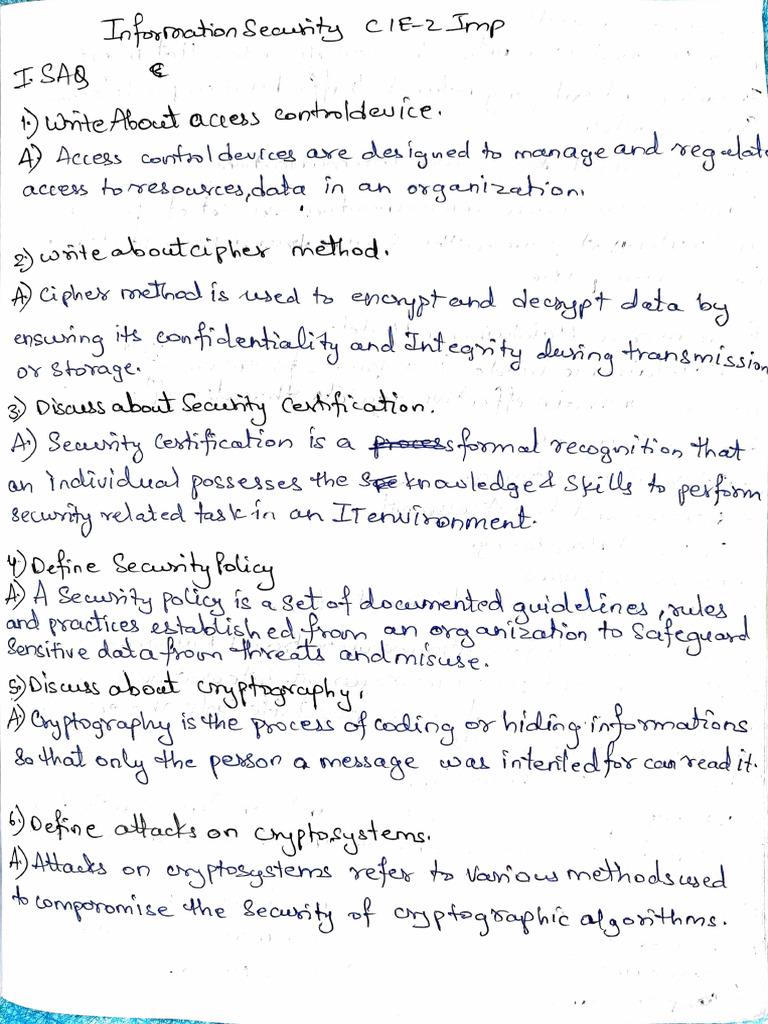 Information Security CIE-2 Imp
I. SAQ
1.) Write About access control device.
A.) Access control devices are designed to manage and regulate
access to resources, data in an organization.
2.) write about cipher method.
A.) Cipher method is used to encrypt and decrypt data by
ensuring its confidentiality and Integrity during transmission
or storage.
3.) Discuss about Security Certification.
A.) Security Certification is a process formal recognition that
an individual possesses the knowledge & skills to perform
security related task in an IT environment.
4.) Define Security Policy
A.) A Security policy is a set of documented guidelines, rules
and practices established from an organization to Safeguard
Sensitive data from threats and misuse.
5.) Discuss about cryptography.
A.) Cryptography is the process of coding or hiding informations
So that only the person a message was intented for can read it.
6.) Define attacks on cryptosystems.
A.) Attacks on cryptosystems refer to various methods used
to comporomise the Security of cryptographic algorithms.